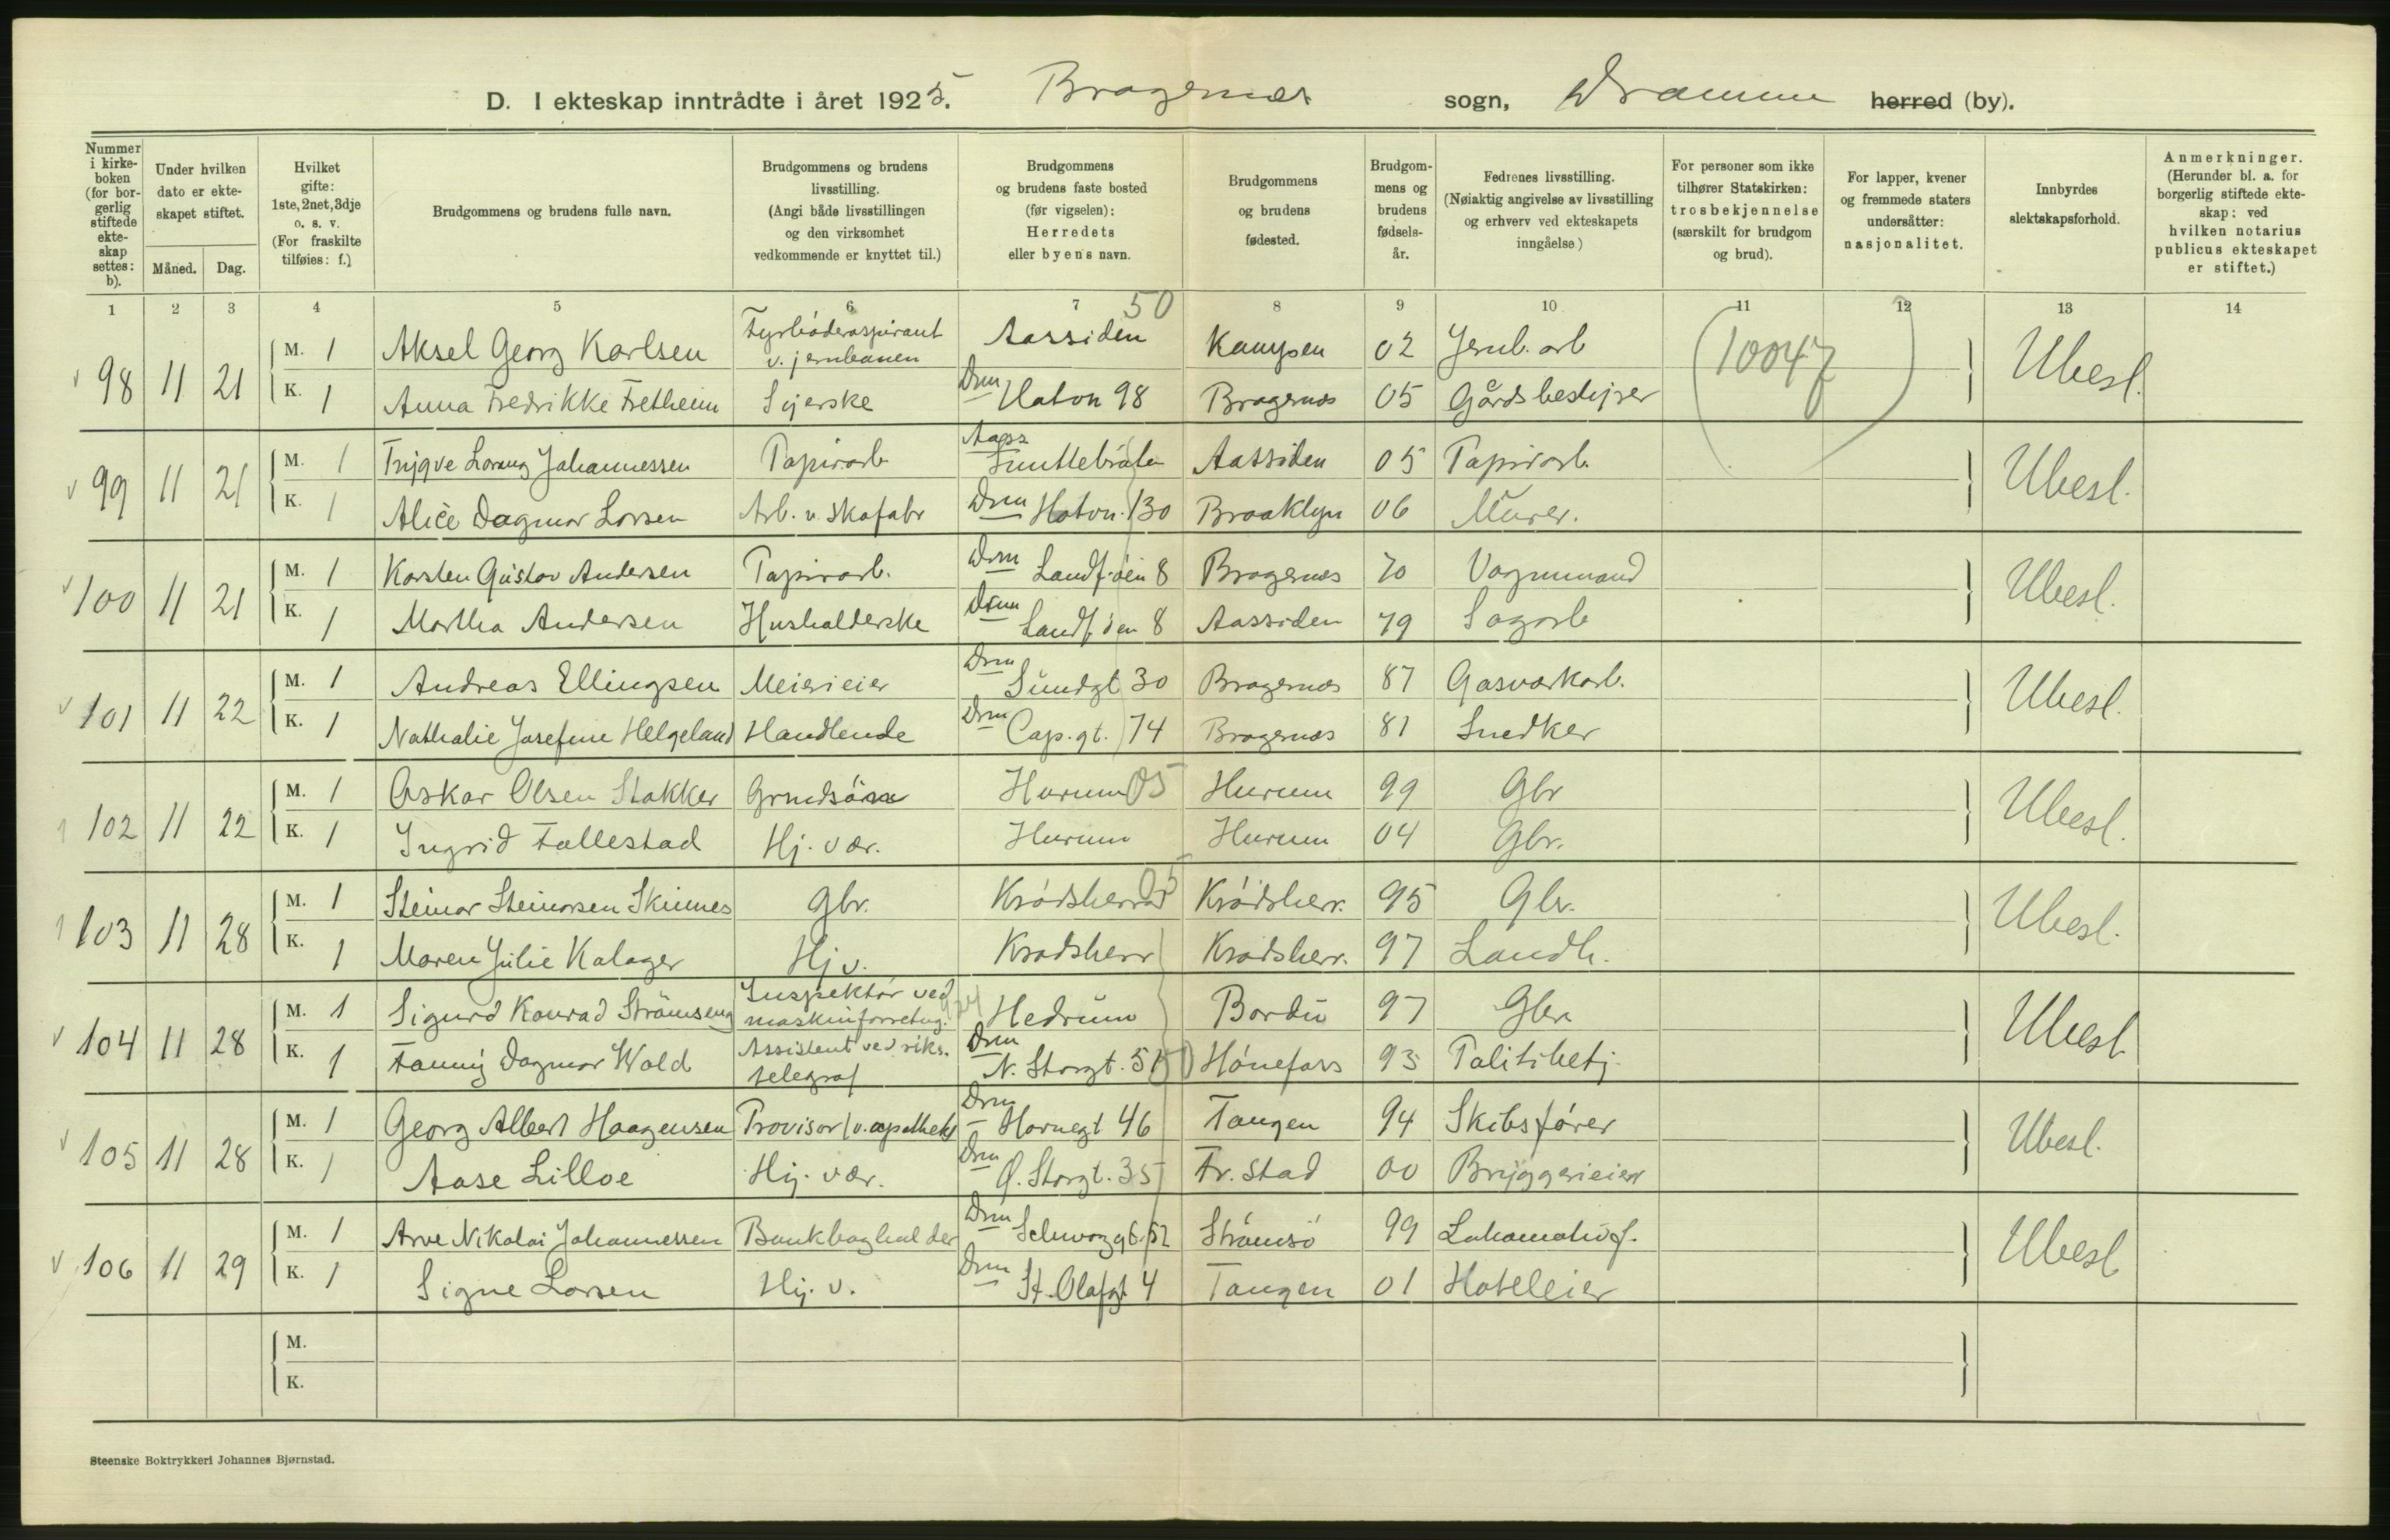 D. I ekteskap inntrådte i året 1925. Bragernes sogn, Drammen herred (by).
Nummer i kirke-boken (for bor-gerlig stiftede ekte-skap settes: b).
Under hvilken dato er ekte-skapet stiftet.
Måned. Dag.
Hvilket gifte: 1ste, 2net, 3dje o. s. v. (For fraskilte tilføies: f.)
Brudgommens og brudens fulle navn.
Brudgommens og brudens livsstilling. (Angi både livsstillingen og den virksomhet vedkommende er knyttet til.)
Brudgommens og brudens faste bosted (før vigselen): Herredets eller byens navn.
Brudgommens og brudens fødested.
Brudgom-mens og brudens fødsels-år.
Fedrenes livsstilling. (Nøiaktig angivelse av livsstilling og erhverv ved ekteskapets inngåelse)
For personer som ikke tilhører Statskirken: trosbekjennelse (særskilt for brudgom og brud).
For lapper, kvener og fremmede staters undersåtter: nasjonalitet.
Innbyrdes slektskapsforhold.
Anmerkninger. (Herunder bl. a. for borgerlig stiftede ekte-skap: ved hvilken notarius publicus ekteskapet er stiftet.)
1 2 3 4 5 6 7 8 9 10 11 12 13 14
50
98 11 21 M. 1 Aksel Georg Karlsen Fyrbøderaspirant v. jernbanen Aassiden Kampen 02 Jernb. arb (10047) Ubesl.
K. 1 Anna Fredrikke Fretheim Syerske Drm Haton 98 Bragernes 05 Gårdsbestyrer
99 11 21 M. 1 Trygve Lorang Johannessen Papirarb Aass Aassiden 05 Papirarb. Ubesl.
K. 1 Alice Dagmar Larsen Arb. v. skofabr Drm Hotvn. 130 Brooklyn 06 Murer.
100 11 21 M. 1 Karsten Gustav Andersen Papirarb. Drm Landf.øen 8 Bragernes 70 Vognmand Ubesl.
K. 1 Martha Andersen Husholderske Drm Landf.øen 8 Aassiden 79 Sagarb
101 11 22 M. 1 Andreas Ellingsen Meierieier Drm Sundgt 30 Bragernes 87 Gasverkarb. Ubesl.
K. 1 Nathalie Josefine Helgeland Handlende Drm Cap. gt. 74 Bragernes 81 Snedker
102 11 22 M. 1 Oskar Olsen Stokker Hurum 05 Hurum 99 Gbr Ubesl.
K. 1 Ingrid Tallestad Hj. vær. Hurum Hurum 04 Gbr.
103 11 28 M. 1 Steinar Steinarsen Skinnes Gbr. Krødsherred 05 Krødsherr. 95 Gbr. Ubesl.
K. 1 Maren Julie Kalager Hj v. Krødsherr Krødsherr. 97 Landh.
104 11 28 M. 1 Sigurd Konrad Strømseng Inspektør ved maskinforretng. Hedrum Bardu 97 Gbr Ubesl.
K. 1 Fanny Dagmar Wold Assistent ved riks. telegraf Drm N. Storgt. 51 Hønefoss 93 Politibetj.
105 11 28 M. 1 Georg Albert Haagensen Provisor v. apothek Drm Havnegt 46 Tangen 94 Skibsfører Ubesl.
K. 1 Aase Lilloe Hj. vær. Drm Ø. Storgt. 35 Fr. stad 00 Bryggerieier
106 11 29 M. 1 Arve Nikolai Johannessen Bankbogholder Drm Schwarzgt. 52 Strømsø 99 Lokomotivf. Ubesl
K. 1 Signe Larsen Hj. v. Drm St. Olafgt 4 Tangen 01 Hoteleier
M.
K.
Steenske Boktrykkeri Johannes Bjørnstad.